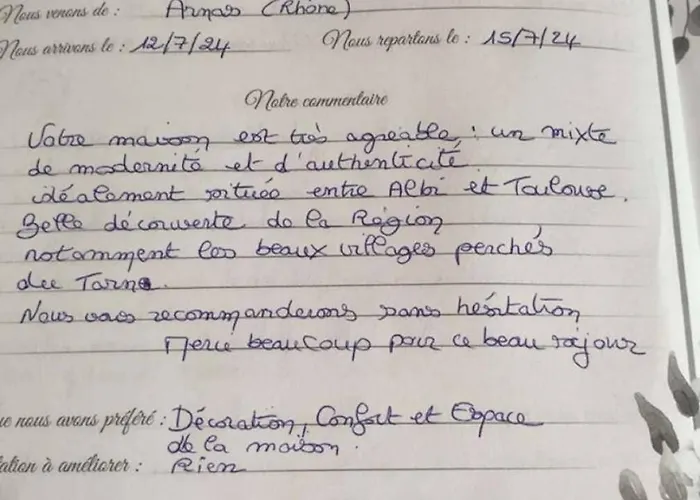 Nous venons de : Arnas (Rhône)
Nous arrivons le : 12/7/24 Nous repartons le : 15/7/24
Notre commentaire
Votre maison est très agréable ; un mixte
de modernité et d'authenticité
idéalement située entre Albi et Toulouse.
Belle découverte de la Région
notamment les beaux villages perchés
du Tarn.
Nous vous recommanderons sans hésitation
Merci beaucoup pour ce beau séjour
ue nous avons préféré : Décoration, Confort et Espace
de la maison.
ation à améliorer : Rien